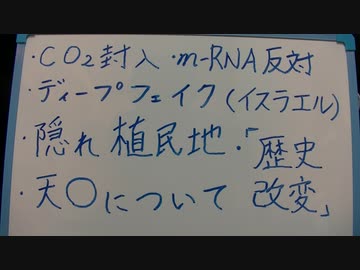 ・CO₂封入・m-RNA反対
・ディープフェイク(イスラエル)
・隠れ植民地・「歴史
・天〇について 改変」